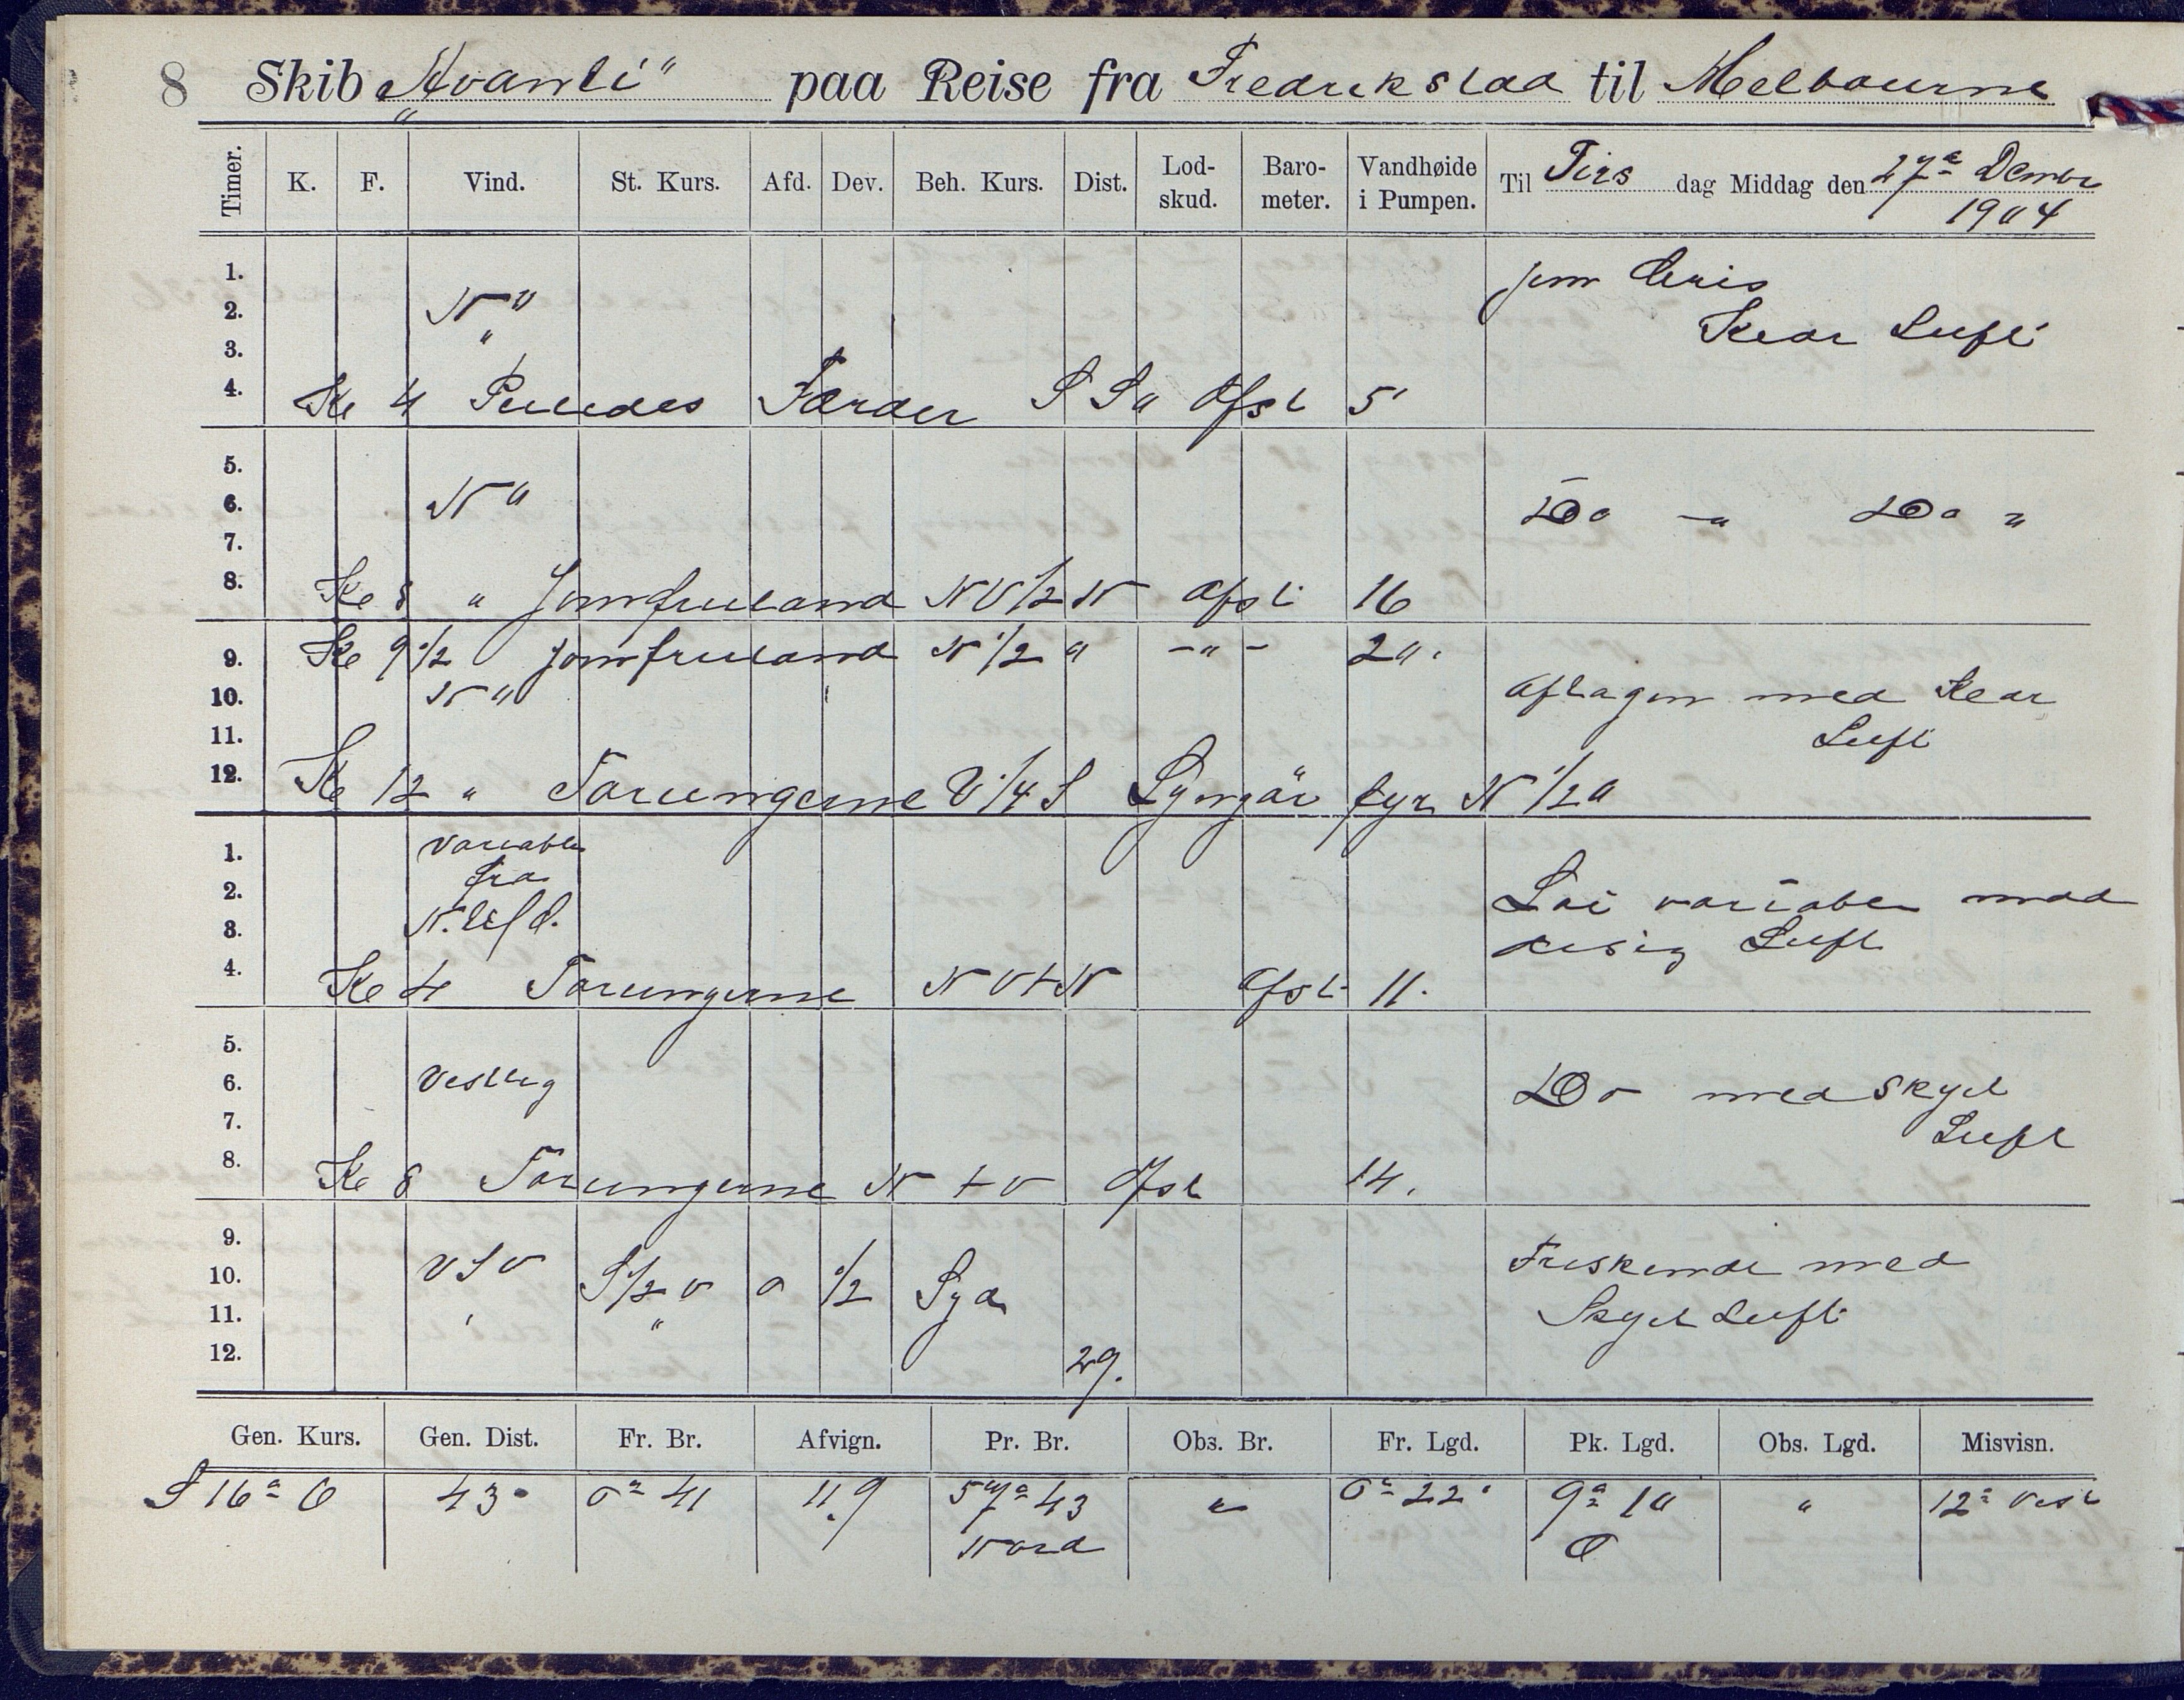 8 Skib „Avanti" paa Reise fra Fredrikstad til Melbourne
Timer. K. F. Vind. St. Kurs. Afd. Dev. Beh. Kurs. Dist. Lod-skud. Baro-meter. Vandhøide i Pumpen. Til Tirs dag Middag den 27de Dembr
1904
1. jevn Bris
2. NO
3. " Klar Luft
4. Kl 4 Peiledes Færder SSO Afst 5'
5.
6. NO Do -" Do "
7.
8. Kl 8 " Jomfruland NV 1/2 N Afst 16
9. Kl 9 1/2 Jomfruland N 1/2 O -"- 20.
10. NO Aftagen med klar
11. Luft
12. Kl 12 " Torungerne V 1/4 S Lyngör fyr N 1/2 O
1. variabel
2. fra Löi variabel med
3. disig Luft
4. Kl 4 Torungerne NVtN Afst 11.
5.
6. Vestlig Do med Skyet
7. Luft
8. Kl 8 Torungerne N t V Afst 14.
9. Friskende med
10. VSV S 1/2 V 0 1/2 Syd
11. " " Skyet Luft
12. 29.
Gen. Kurs. Gen. Dist. Fr. Br. Afvign. Pr. Br. Obs. Br. Fr. Lgd. Pk. Lgd. Obs. Lgd. Misvisn.
S 16° O 43 0° 41 11.9 57° 43 " 0° 22' 9° 10 " 12° Vest
Nord O